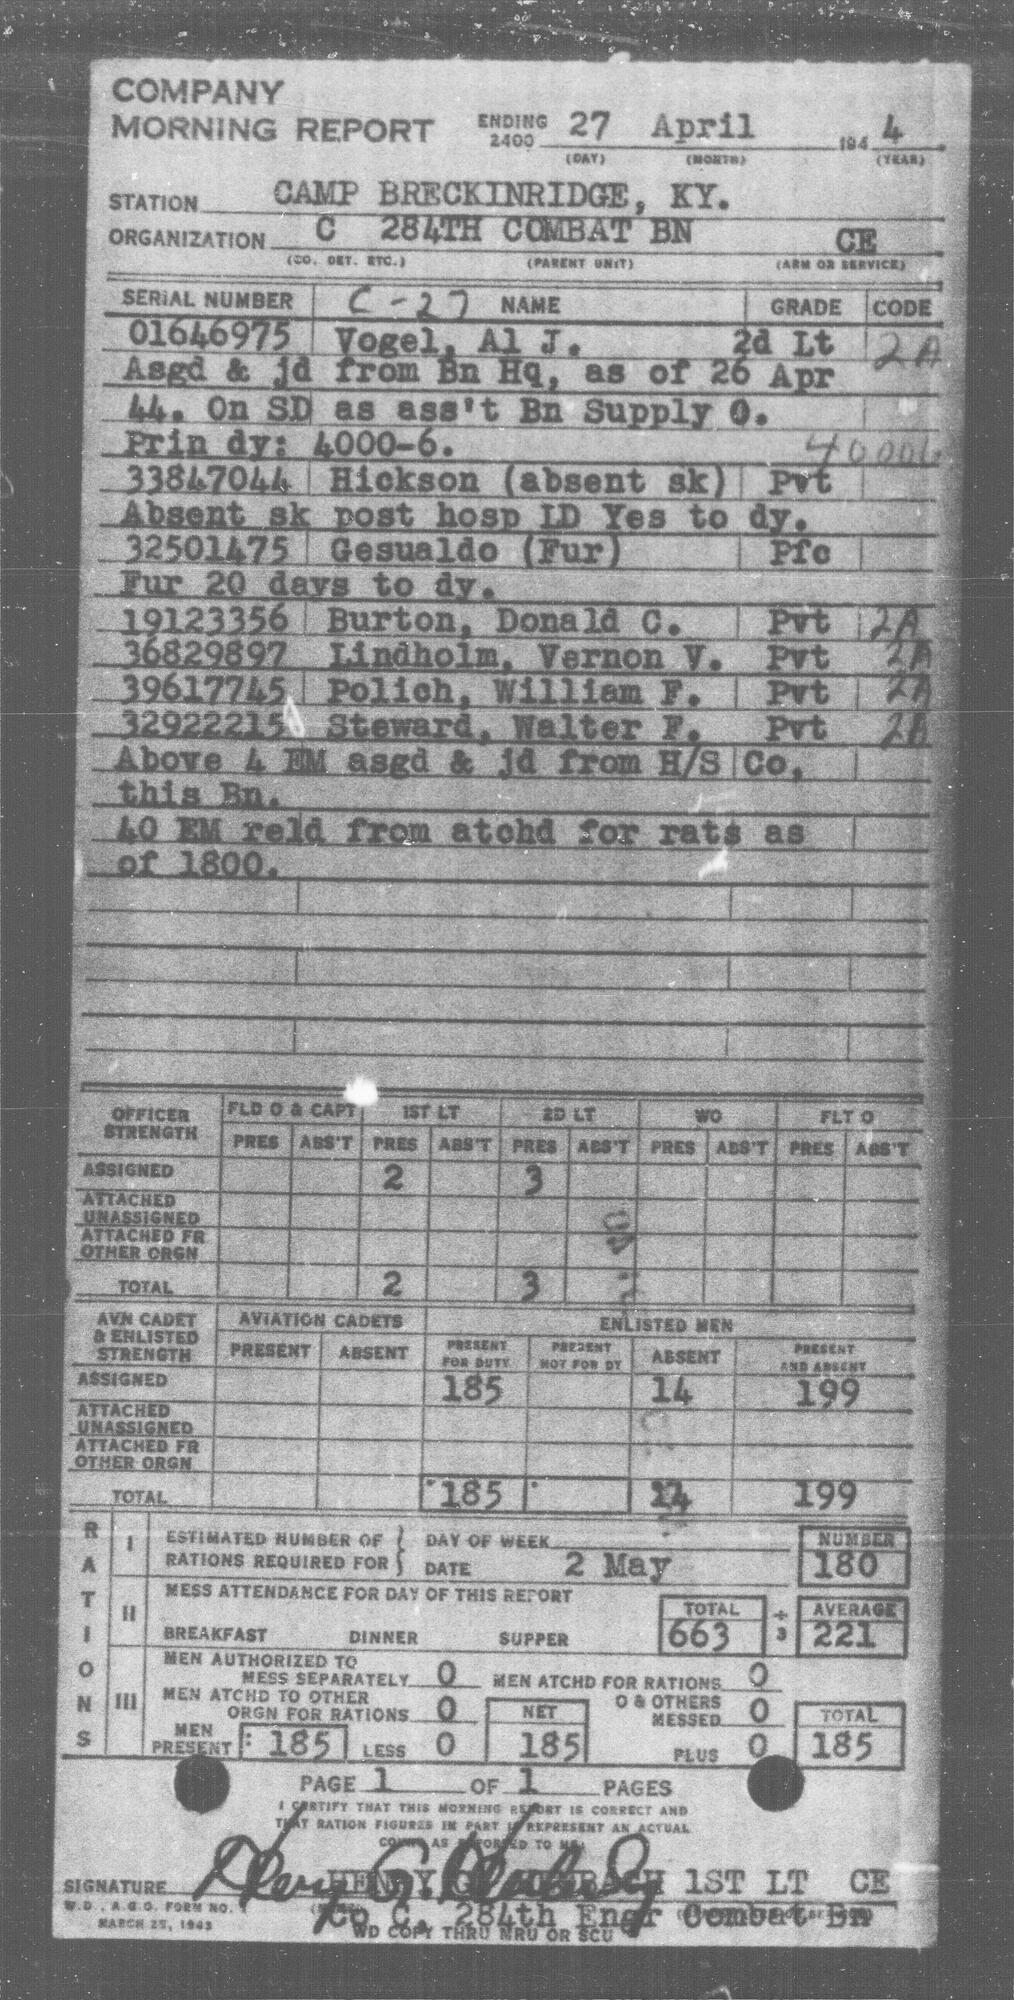 COMPANY
MORNING REPORT ENDING 2400 27 April 194 4
(DAY) (MONTH) (YEAR)
STATION CAMP BRECKINRIDGE, KY.
ORGANIZATION C 284TH COMBAT BN CE
(CO. DET. ETC.) (PARENT UNIT) (ARM OR SERVICE)
SERIAL NUMBER C-27 NAME GRADE CODE
01646975 Vogel, Al J. 2d Lt 2A
Asgd & jd from Bn Hq, as of 26 Apr
44. On SD as ass't Bn Supply O.
Prin dy: 4000-6. 40006
33847044 Hickson (absent sk) Pvt
Absent sk post hosp LD Yes to dy.
32501475 Gesualdo (Fur) Pfc
Fur 20 days to dy.
19123356 Burton, Donald C. Pvt 2A
36829897 Lindholm, Vernon V. Pvt 2A
39617745 Polich, William F. Pvt 2A
32922215 Steward, Walter F. Pvt 2A
Above 4 EM asgd & jd from H/S Co,
this Bn.
40 EM reld from atchd for rats as
of 1800.
OFFICER STRENGTH FLD O & CAPT 1ST LT 2D LT WO FLT O
PRES ABS'T PRES ABS'T PRES ABS'T PRES ABS'T PRES ABS'T
ASSIGNED 2 3
ATTACHED UNASSIGNED
ATTACHED FR OTHER ORGN
TOTAL 2 3
AVN CADET & ENLISTED STRENGTH AVIATION CADETS ENLISTED MEN
PRESENT ABSENT PRESENT FOR DUTY PRESENT NOT FOR DY ABSENT PRESENT AND ABSENT
ASSIGNED 185 14 199
ATTACHED UNASSIGNED
ATTACHED FR OTHER ORGN
TOTAL 185 14 199
RATIONS
I ESTIMATED NUMBER OF RATIONS REQUIRED FOR DAY OF WEEK NUMBER
DATE 2 May 180
II MESS ATTENDANCE FOR DAY OF THIS REPORT TOTAL ÷ AVERAGE
BREAKFAST DINNER SUPPER 663 3 221
III MEN AUTHORIZED TO MESS SEPARATELY 0 MEN ATCHD FOR RATIONS 0
MEN ATCHD TO OTHER ORGN FOR RATIONS 0 NET O & OTHERS MESSED 0 TOTAL
MEN PRESENT 185 LESS 0 185 PLUS 0 185
PAGE 1 OF 1 PAGES
I CERTIFY THAT THIS MORNING REPORT IS CORRECT AND
THAT RATION FIGURES IN PART II REPRESENT AN ACTUAL
COUNT AS REPORTED TO ME.
SIGNATURE HENRY G. 1ST LT CE
W.D., A.G.O. FORM NO. 1 Co C, 284th Engr Combat Bn
MARCH 25, 1943 WD COPY THRU MRU OR SCU